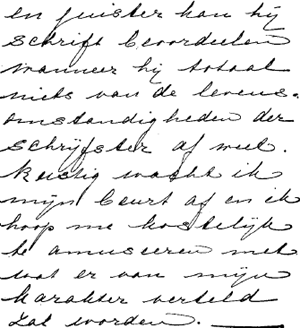 en juister kan hij
schrift beoordeelen
wanneer hij totaal
niets van de levens-
omstandigheden der
schrijfster af weet.
Rustig wacht ik
mijn beurt af en ik
hoop me kostelijk
te amuseeren met
wat er van mijn
karakter verteld
zal worden.